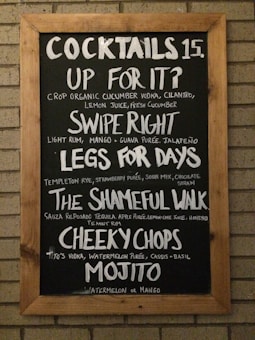 COCKTAILS 15.
UP FOR IT?
CROP ORGANIC CUCUMBER VODKA, CILANTRO,
LEMON JUICE, FRESH CUCUMBER
SWIPE RIGHT
LIGHT RUM, MANGO + GUAVA PURÉE, JALAPEÑO
LEGS FOR DAYS
TEMPLETON RYE, STRAWBERRY PURÉE, SOUR MIX, CHOCOLATE
THE SHAMEFUL WALK
SAUZA REPOSADO TEQUILA, APPLE PUREE, LEMON-LIME
RUM
CHEEKY CHOPS
TITO'S VODKA, WATERMELON PURÉE, CASSIS + BASIL
MOJITO
WATERMELON OR MANGO